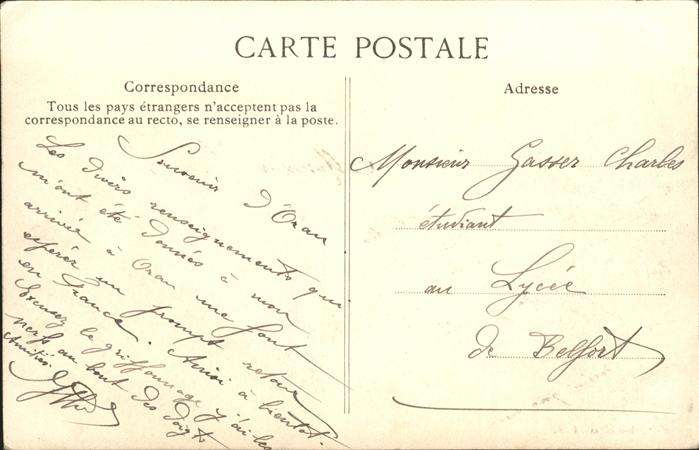 CARTE POSTALE
Correspondance
Tous les pays étrangers n'acceptent pas la
correspondance au recto, se renseigner à la poste.
Souvenir d'Oran
Les divers renseignements qui
m'ont été donnés à mon
arrivée à Oran me font
espérer un prompt retour
en France. Ainsi à bientôt.
Excusez le griffonnage j'ai les
nerfs au bout des doigts
Amitiés
Adresse
Monsieur Gasser Charles
étudiant
au Lycée
de Belfort